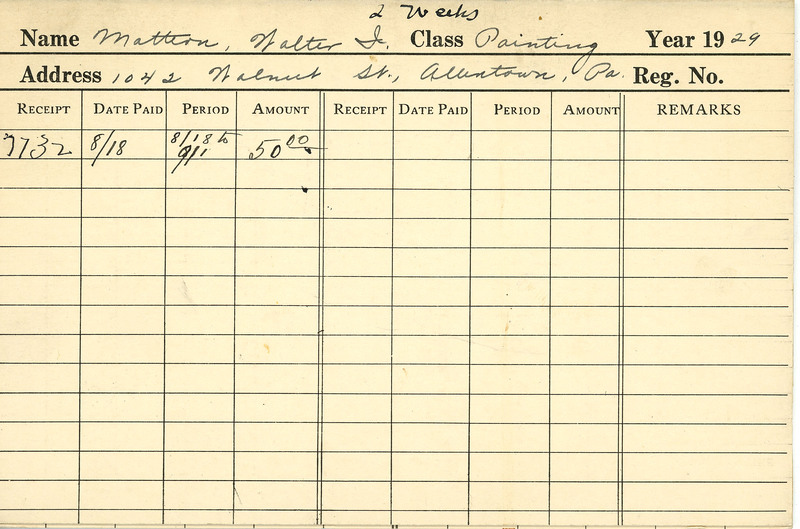 2 Weeks
Name Mattern, Walter I. Class Painting Year 1929
Address 1042 Walnut St., Allentown, Pa. Reg. No.
RECEIPT DATE PAID PERIOD AMOUNT RECEIPT DATE PAID PERIOD AMOUNT REMARKS
7732 8/18 8/18 to 9/1 50.00